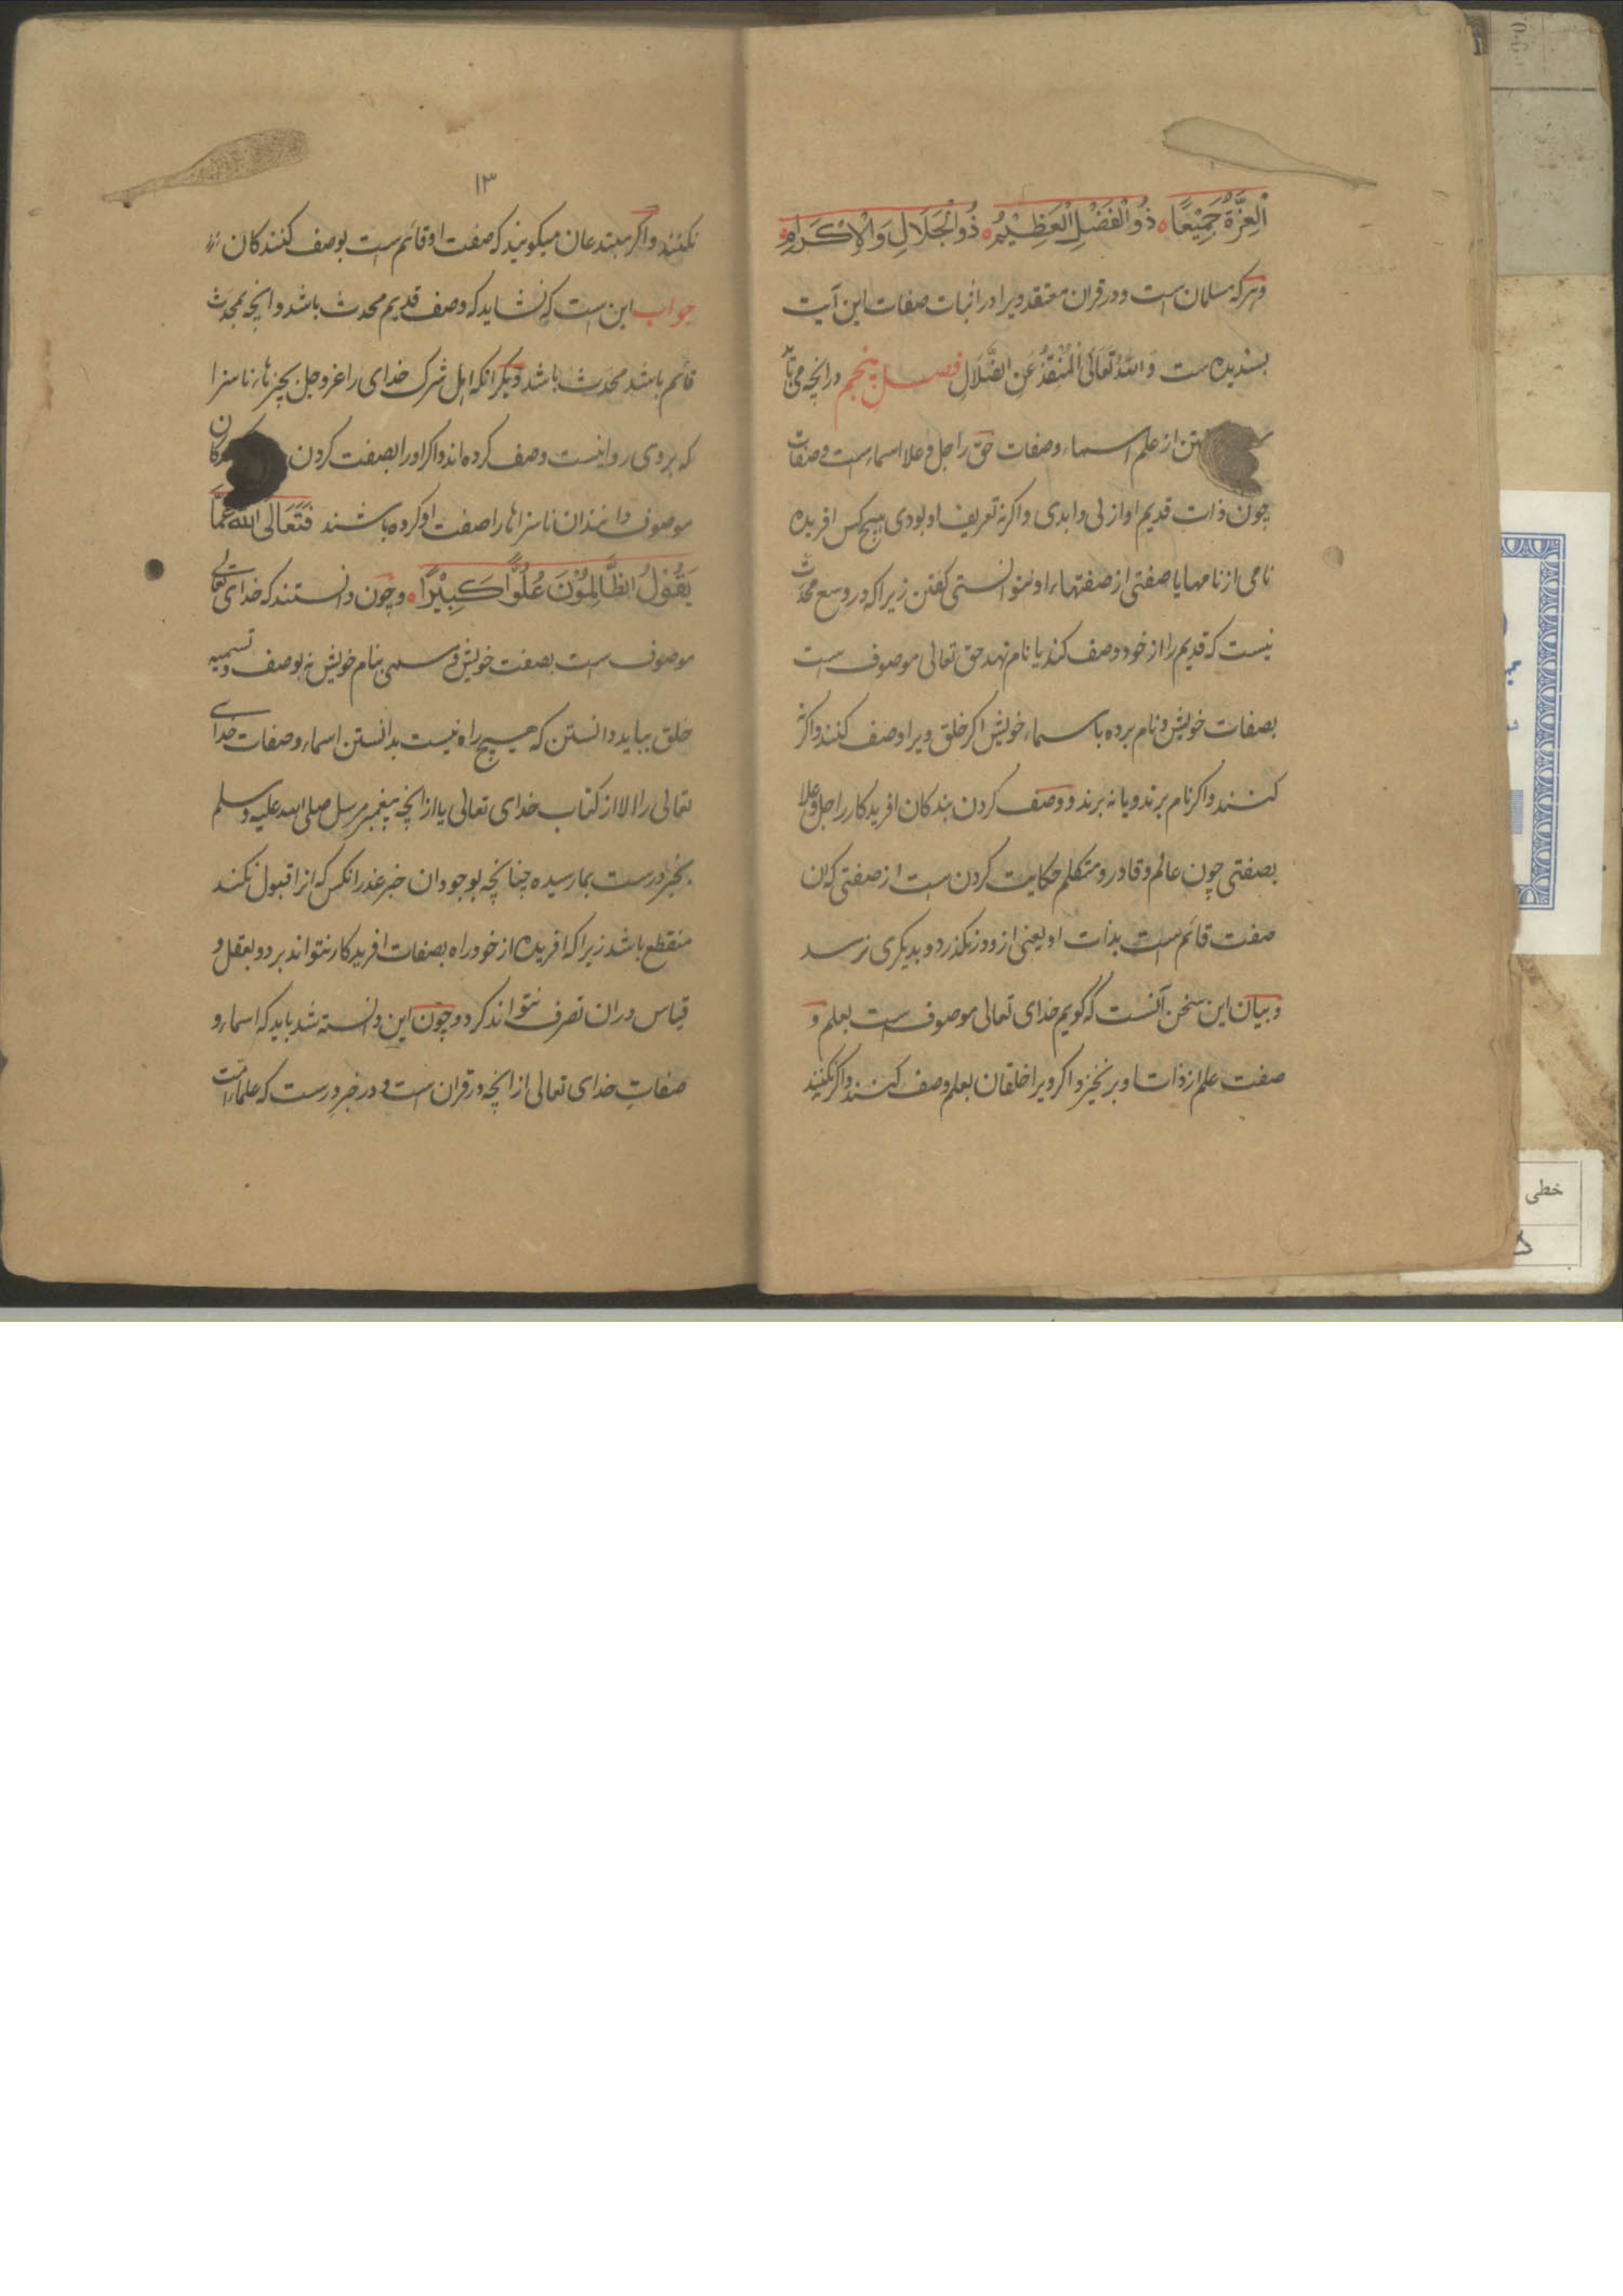 الْعِزَّةُ جَمِيْعًا ذُو الْفَضْلِ الْعَظِيْمِ ذُو الْجَلَالِ وَالْاِكْرَامِ
وهركه مسلمان است و در قران معتقد ویرا در اثبات صفات این آیت
بسندیده است وَاللهُ تَعَالَى الْمُنْقِذُ عَنِ الضَّلَالِ فصل پنجم در انچه می
از علم اسماء وصفات حق را جل وعلا اسماء است وصفات
چون ذات قدیم او ازلی وابدی واکر نه تعریف او بودی هیچ کس افریده
نامی از نامها یا صفتی از صفتهاء او نتوانستی کفتن زیرا که در وسع محدث
نیست که قدیم را از خود وصف کند یا نام نهد حق تعالی موصوف است
بصفات خویش ونام برده باسماء خویش اکر خلق ویرا وصف کنند واکر نه
کنند واکر نام برند ویا نه برند ووصف کردن بندکان افریدکار را جل وعلا
بصفتی چون عالم وقادر ومتکلم حکایت کردن است از صفتی که ان
صفت قائم است بذات او یعنی ازو درنکذرد وبدیکری نرسد
وبیان این سخن آنست که کویم خدای تعالی موصوف است بعلم و
صفت علم از ذات او برنخیزد اکر ویرا خلقان بعلم وصف کنند واکر نکنند
۱۳
نکنند واکر مبتدعان میکویند که صفت او قائم است بوصف کنندکان
جواب این است که نشاید که وصف قدیم محدث باشد وانچه بمحدث
قائم باشد محدث باشد ودیکر انکه اهل شرک خدای را عز وجل بچیزهاء ناسزا
که بروی روا نیست وصف کرده اند واکر او را بصفت کردن
موصوف دانند ان ناسزاها را صفت او کرده باشند فَتَعَالَى اللهُ عَمَّا
يَقُوْلُ الظَّالِمُوْنَ عُلُوًّا كَبِيْرًا وچون دانستند که خدای تعالی
موصوف است بصفت خویش ومسمی بنام خویش نه بوصف وتسمیه
خلق بباید دانستن که هیچ راه نیست بدانستن اسماء وصفات خدای
تعالی را الا از کتاب خدای تعالی یا از انچه پیغمبر مرسل صلی الله علیه وسلم
بخبر درست بما رسیده چنانچه بوجود ان خبر عذر انکس که انرا قبول نکند
منقطع باشد زیرا که افریده از خود راه بصفات افریدکار نتواند برد وبعقل و
قیاس دران تصرف نتواند کرد وچون این دانسته شد باید که اسماء و
صفاتِ خدای تعالی از انچه در قران است ودر خبر درست که علماء امت
خطی